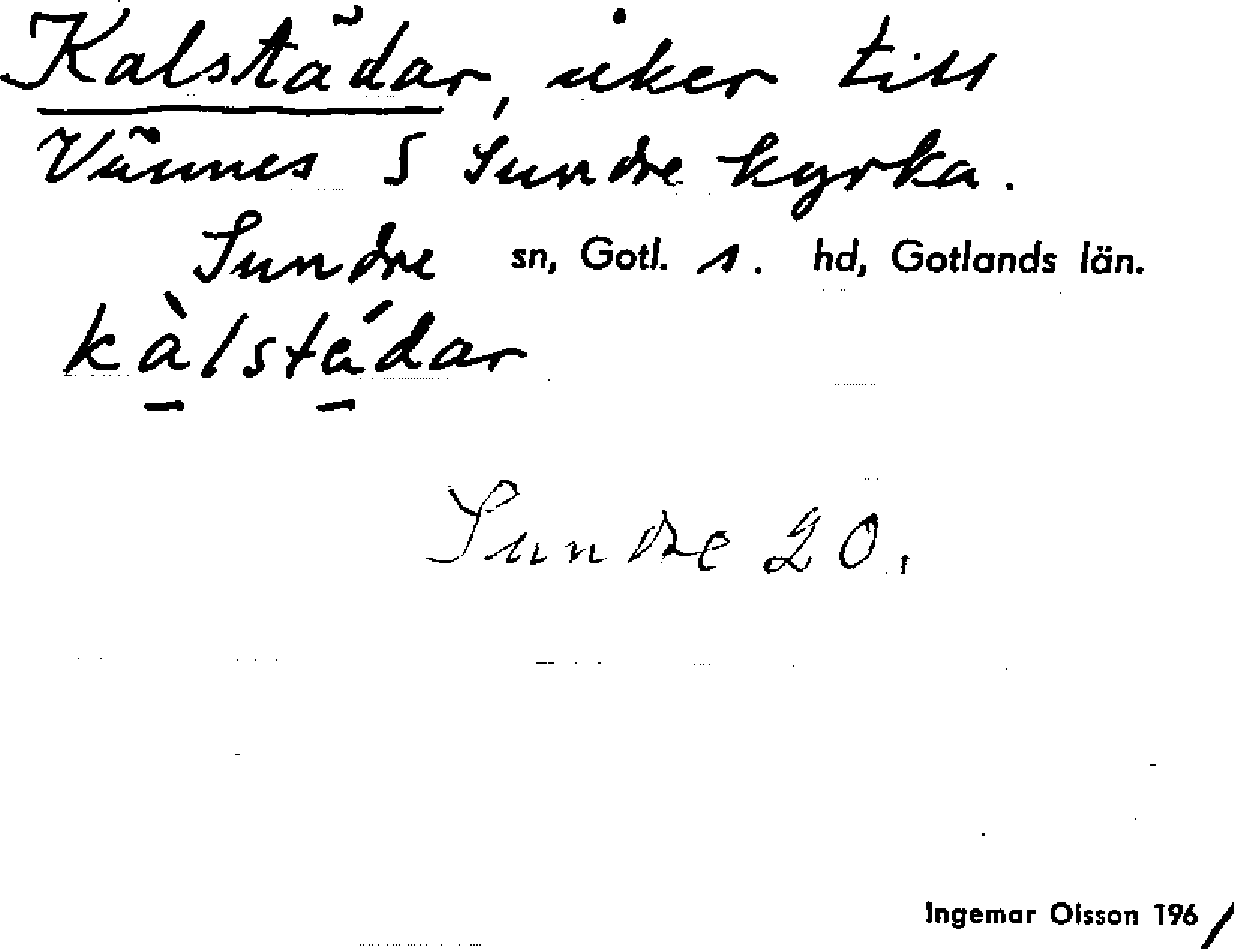 Kalstädar, åker till
Vännes S Sundre kyrka.
Sundre sn, Gotl. s. hd, Gotlands län.
kàlstádar
Sundre 20.
Ingemar Olsson 196/